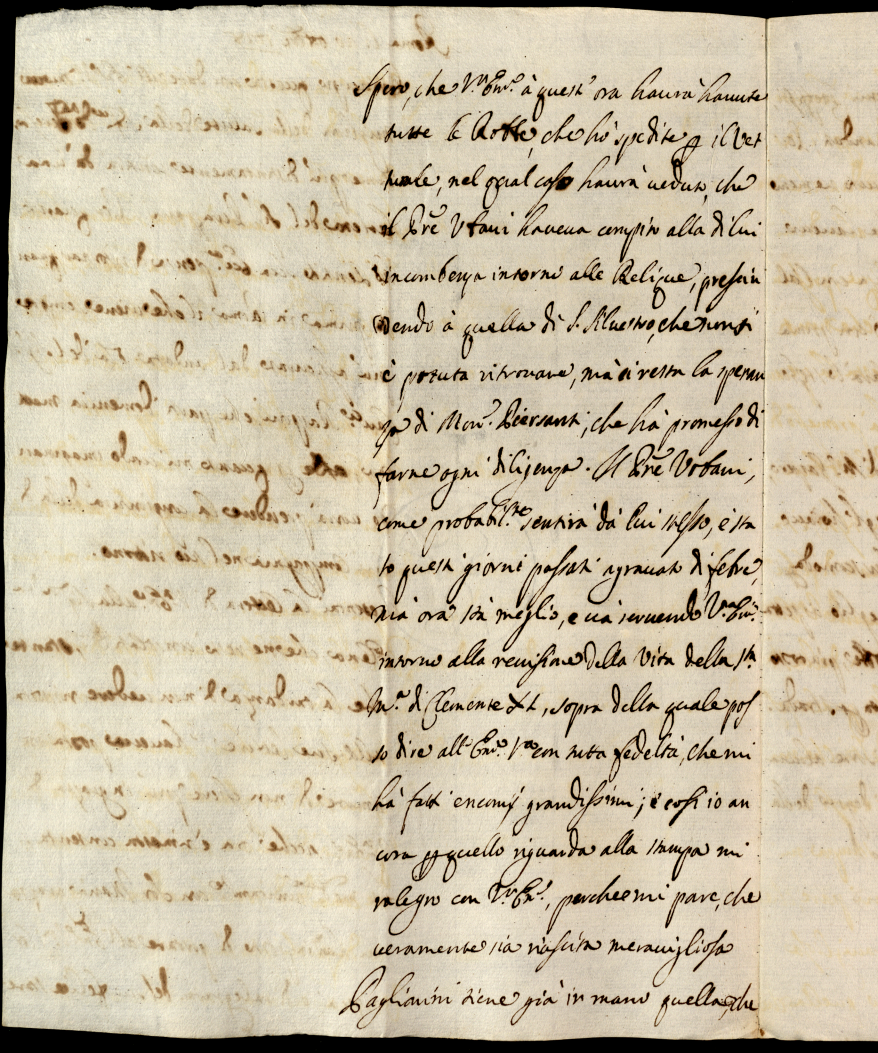 Spero, che V.ra Em.a à quest' ora haurà hauute
tutte le Robbe, che hò spedite p il Vet
turale, nel qual caso haurà ueduto, che
il Pre Vrbani haueua compito alla di lui
incombenza intorno alle Relique, prescin
dendo à quella di S. Siluestro, che non si
è potuta ritrouare, mà ci resta la speran
za di Mon.r Piersanti, che hà promesso di
farne ogni diligenza. Il Pre Vrbani,
come probabil.te sentirà dà lui stesso, è sta
to questi giorni passati agrauato di febre,
mà ora stà meglio, e uà seruendo V.ra Em.a
intorno alla reuisione della Vita della S.ta
M.a di Clemente XI, sopra della quale pos
so dire all' Em.a V.ra con tutta fedeltà, che mi
hà fatti encomij grandissimi; e cosi io an
cora p quello riguarda alla stampa mi
ralegro con V.ra Em.a, perche mi pare, che
ueramente sia riuscita merauigliosa
Pagliarini tiene già in mano quella, che